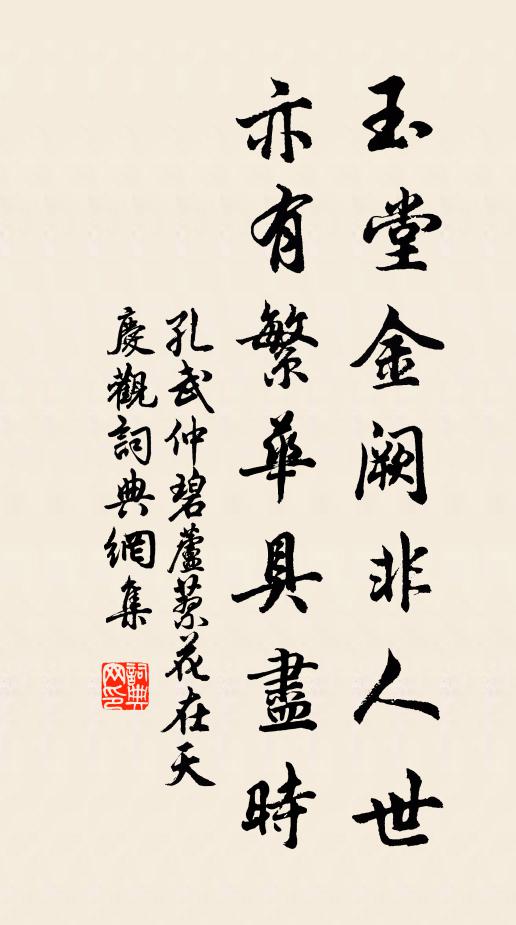 玉堂金闕非人世
亦有繁華具盡時
孔武仲碧蘆蔡花在天
慶觀詞典網集
詞典
网印